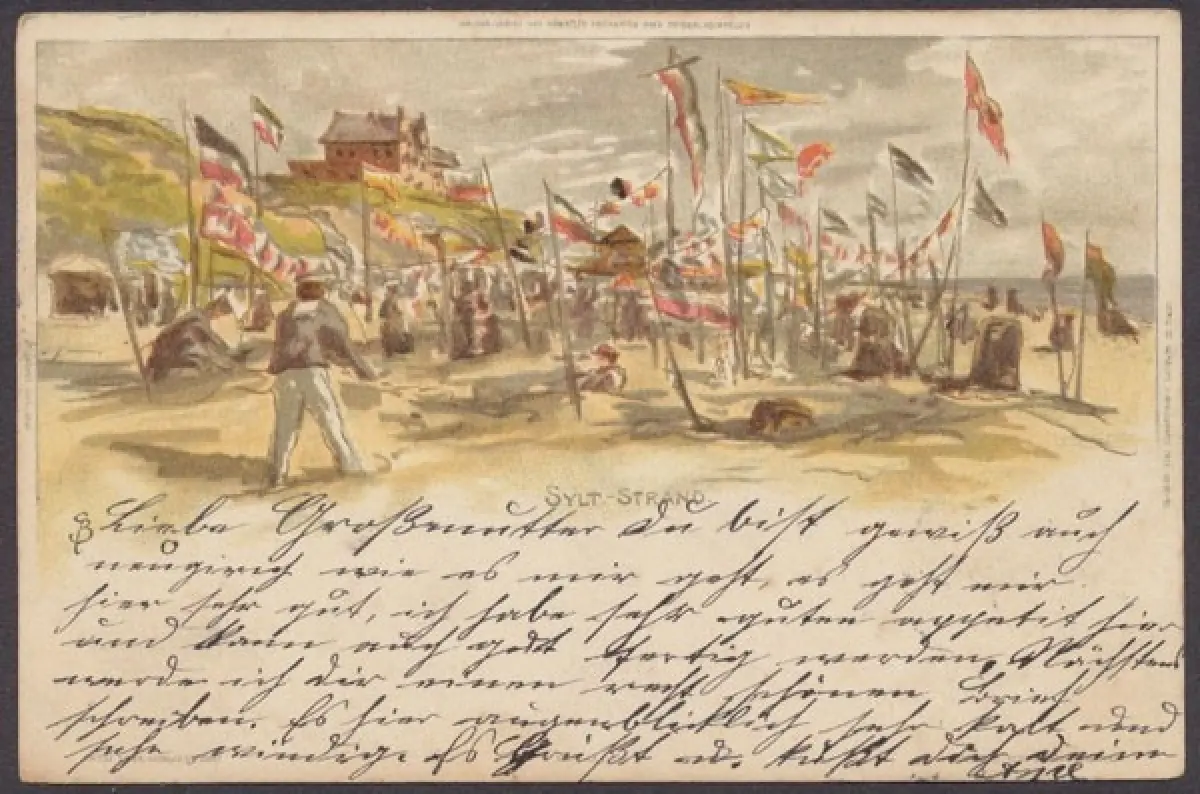 SYLT-STRAND
Liebe Großmutter Du bist gewiß auch
neugirich wie es mir geht, es geht mir
hier sehr gut, ich habe sehr guten appetit hier
und kann auch gut fertig werden, Nächstens
werde ich Dir einen recht schönen Brief
schreiben. Es hier augenblicklich sehr kalt und
sehr windig. Es Grüßt u. küßt dich deine